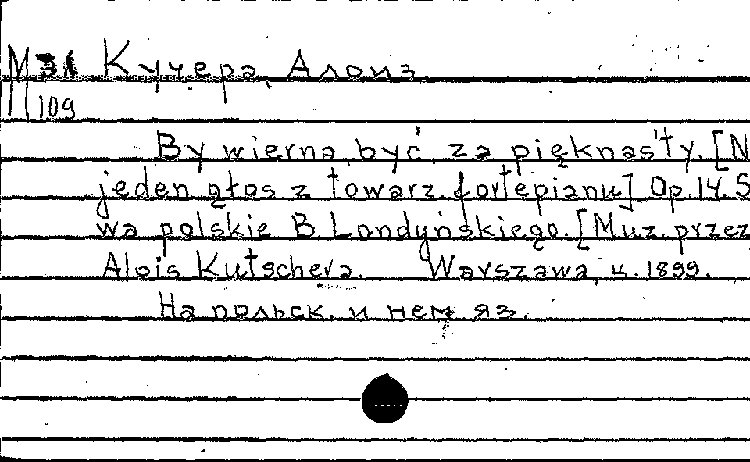 М31 Кучера, Алоиз.
109
By wierną być za pięknaś ty. [N
jeden głos z towarz. fortepianu] Op. 14. S
wa polskie B. Londyńskiego. [Muz. przez
Alois Kutschera. Warszawa, ц. 1899.
На польск. и нем яз.